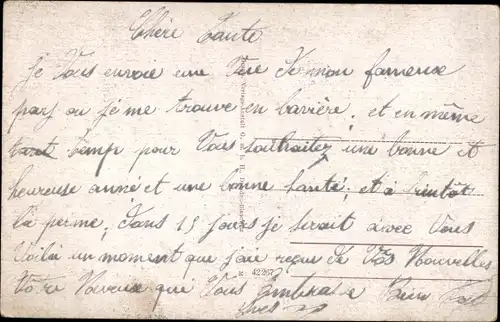 Chère Tante
Je Vous envoie une Vue de mon fameux
pays ou je me trouve en bavière, et en même
temp pour Vous souhaitez une bonne et
heureuse anné et une bonne Santé, et à bientôt
la perme, dans 15 jours je serait avec Vous
Voila un moment que jaie reçue de Vos Nouvelles
Votre Neveux que Vous embrasse Bien fort
42257